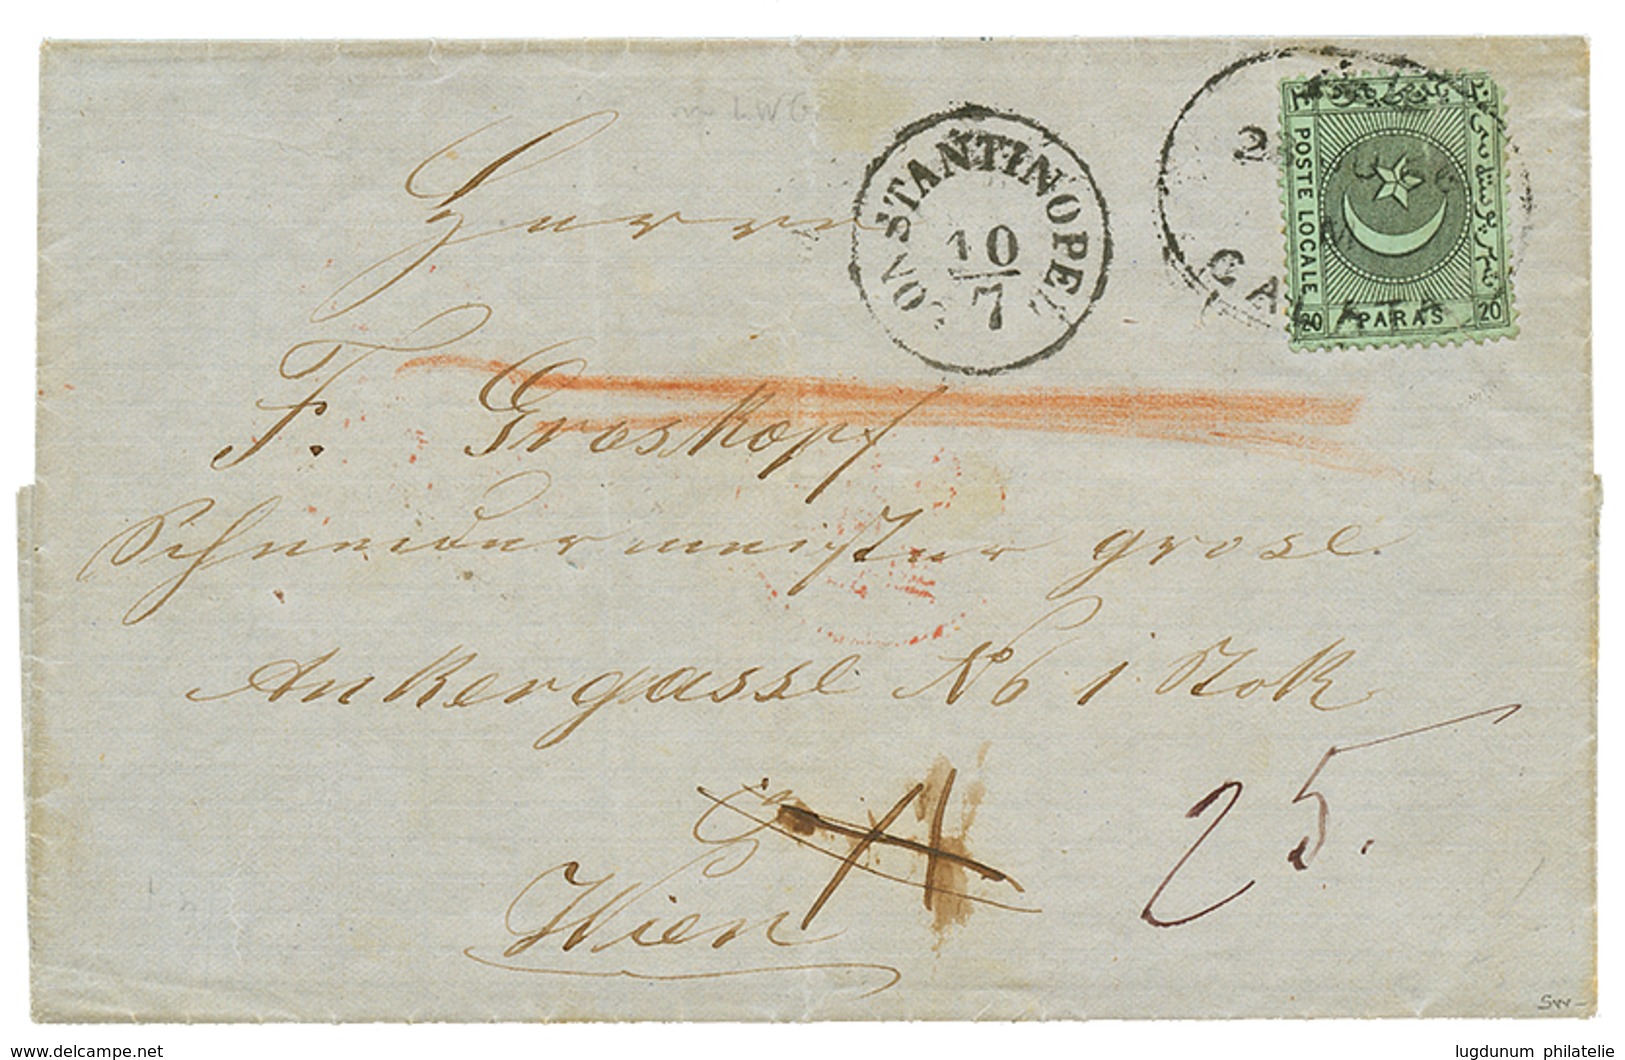 Herrn
F. Groskopf
Schneidermeister grose
Ankergasse No 1 Stok
in
Wien
25.
CONSTANTINOPEL
10
7
GALATA
POSTE LOCALE
20 PARAS 20
delcampe.net
lugdunum philatelie